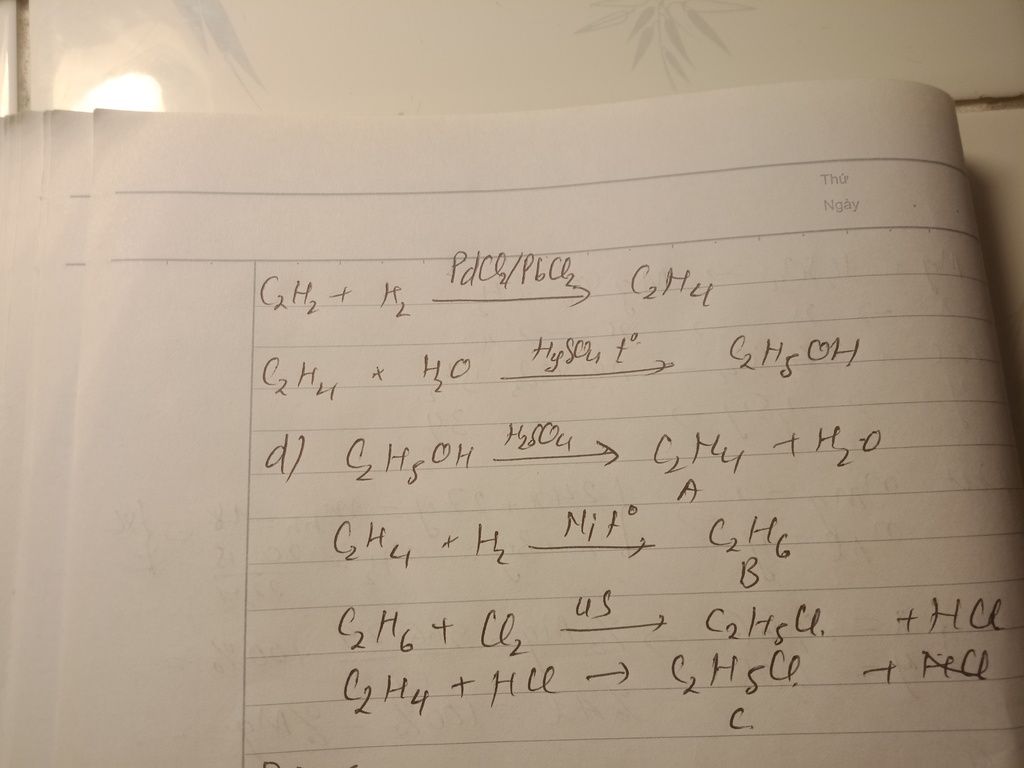 Thứ
Ngày
C2H2 + H2 PdCl2/PbCl2 → C2H4
C2H4 + H2O HgSO4 t° → C2H5OH
d) C2H5OH H2SO4 → C2H4 + H2O
A
C2H4 + H2 Ni t° → C2H6
B
C2H6 + Cl2 as → C2H5Cl + HCl
C2H4 + HCl → C2H5Cl + HCl
C.